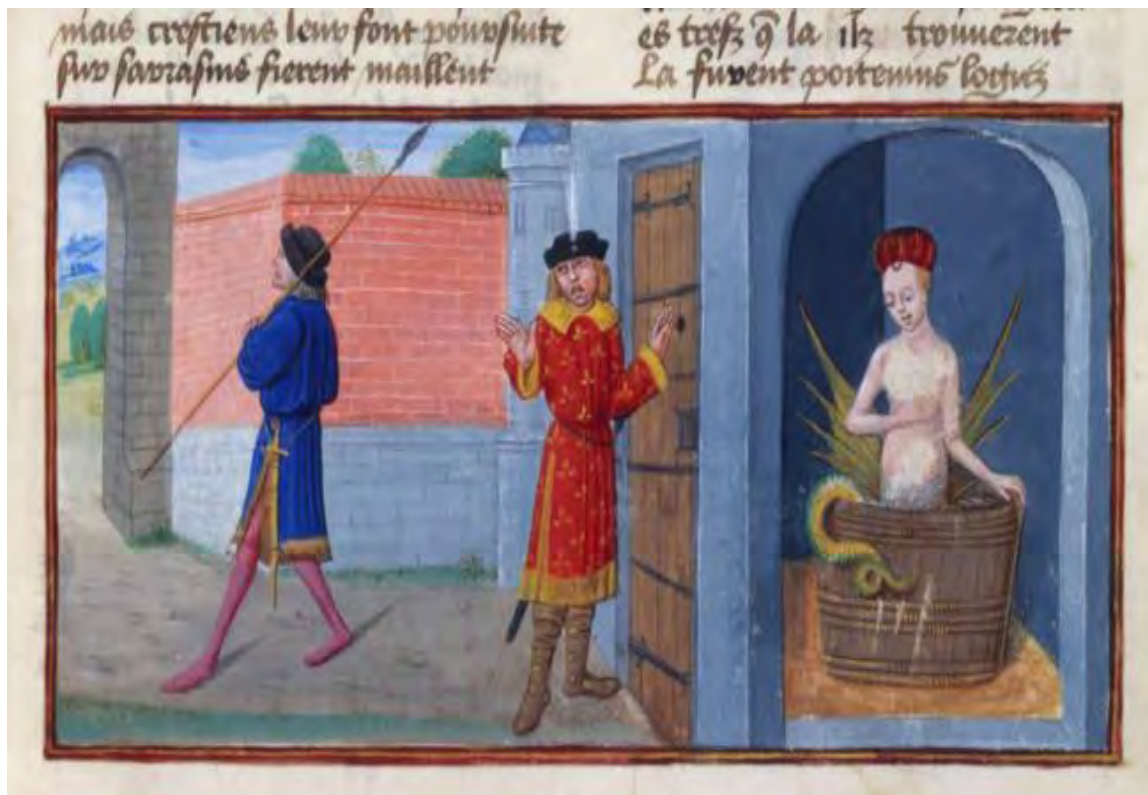 mais crestiens leur font poursuite
sur sarrasins fierent maillent
es trefz q̄ la ilz trouuerent
La furent poiteuins logiez